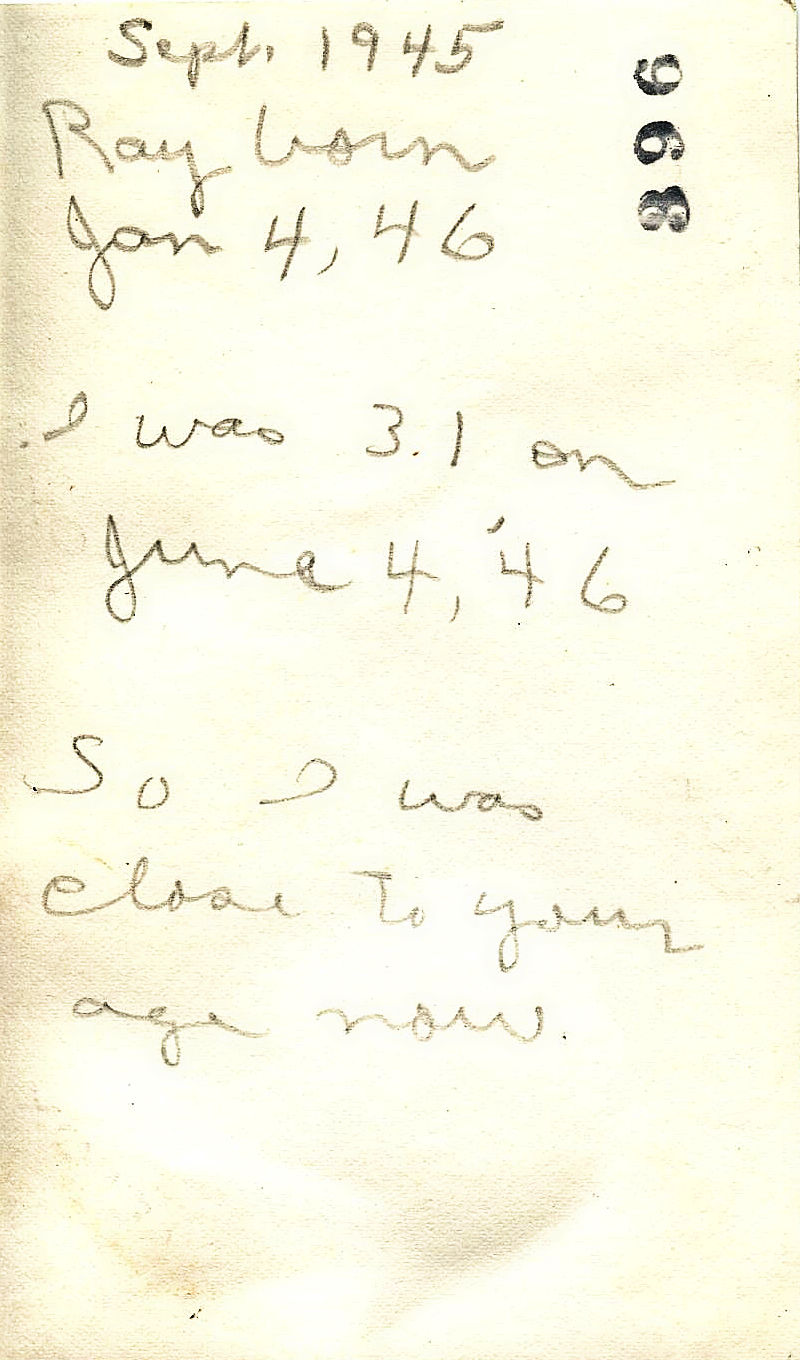 Sept. 1945
Ray born
Jan 4, 46
I was 31 on
June 4, '46
So I was
close to your
age now.